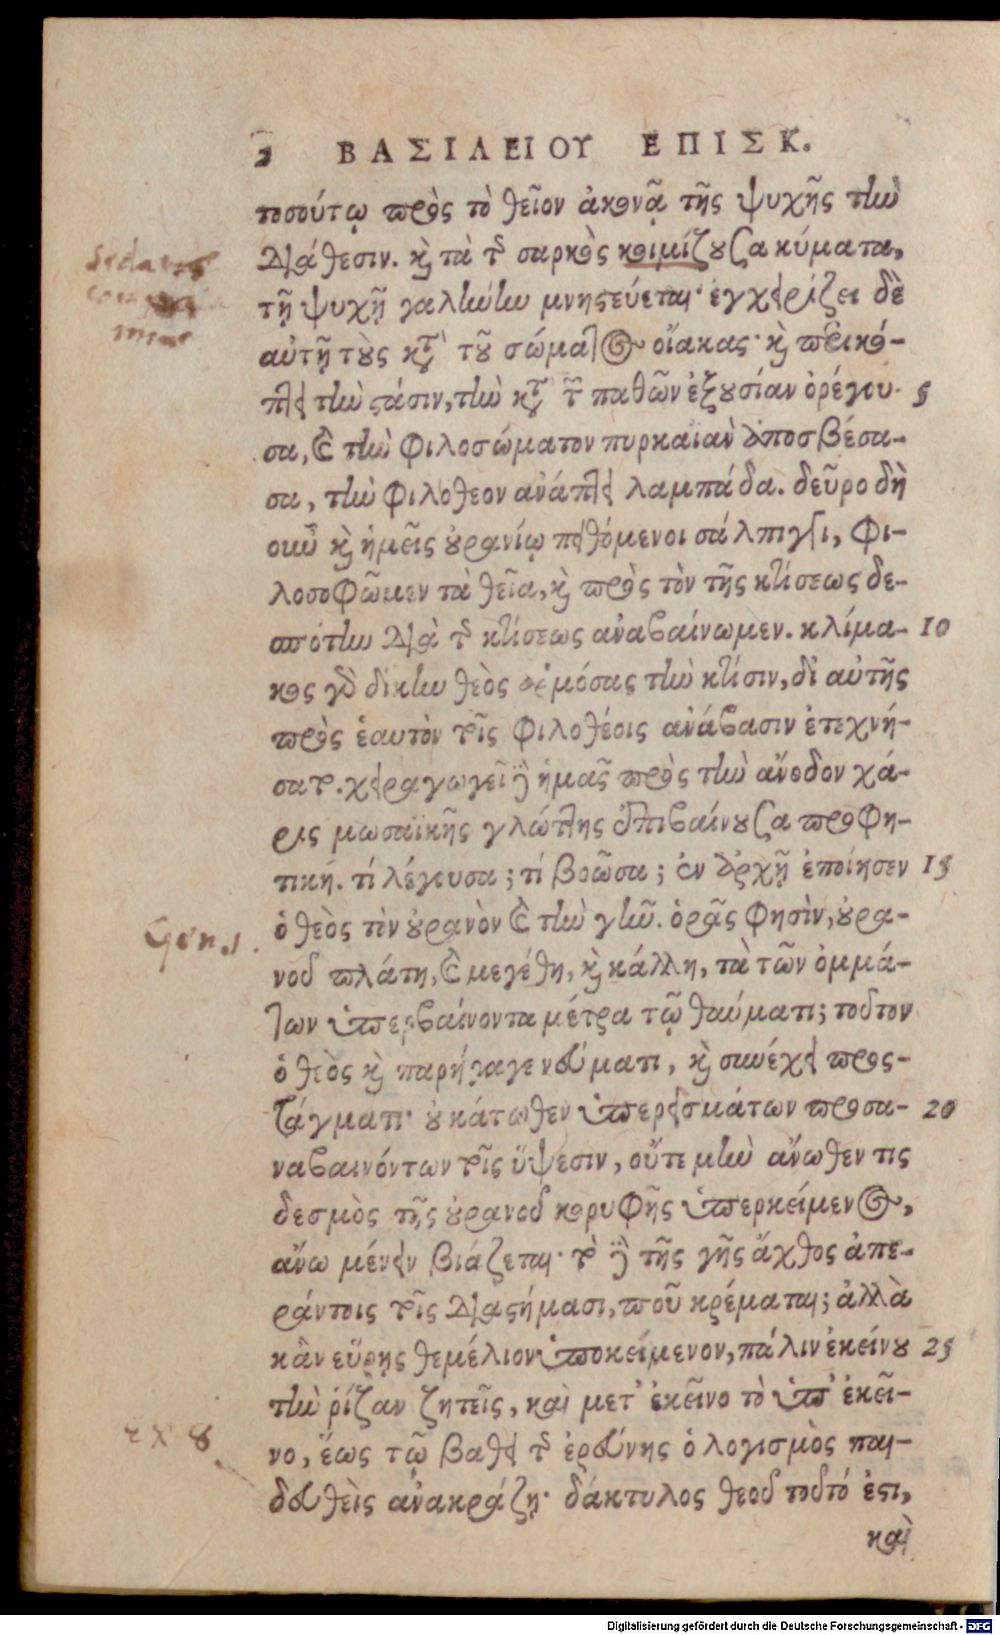 2 ΒΑΣΙΛΕΙΟΥ ΕΠΙΣΚ.
τοσούτῳ πρὸς τὸ θεῖον ἀκονᾷ τῆς ψυχῆς τὴν
διάθεσιν. καὶ τὰ τῆς σαρκὸς κοιμίζουσα κύματα,
τῇ ψυχῇ γαλήνην μνηστεύεται· ἐγχειρίζει δὲ
αὐτῇ τοὺς κατὰ τοῦ σώματος οἴακας· καὶ περικό-
πτει τὴν στάσιν, τὴν κατὰ τῶν παθῶν ἐξουσίαν ὀρέγου- 5
σα, καὶ τὴν φιλοσώματον πυρκαϊὰν ἀποσβέσα-
σα, τὴν φιλόθεον ἀνάπτει λαμπάδα. δεῦρο δὴ
οὖν καὶ ἡμεῖς οὐρανίῳ πειθόμενοι σάλπιγγι, φι-
λοσοφῶμεν τὰ θεῖα, καὶ πρὸς τὸν τῆς κτίσεως δε-
σπότην διὰ τῆς κτίσεως ἀναβαίνωμεν. κλίμα- 10
κος γὰρ δίκην θεὸς ἁρμόσας τὴν κτίσιν, δι' αὐτῆς
πρὸς ἑαυτὸν τοῖς φιλοθέοις ἀνάβασιν ἐτεχνή-
σατο. χειραγωγεῖ δὲ ἡμᾶς πρὸς τὴν ἄνοδον χά-
ρις μωσαϊκῆς γλώττης ἐπιβαίνουσα προφη-
τική. τί λέγουσα; τί βοῶσα; ἐν ἀρχῇ ἐποίησεν 15
ὁ θεὸς τὸν οὐρανὸν καὶ τὴν γῆν. ὁρᾷς φησὶν, οὐρα-
νοῦ πλάτη, καὶ μεγέθη, καὶ κάλλη, τὰ τῶν ὀμμά-
των ὑπερβαίνοντα μέτρα τῷ θαύματι; τοῦτον
ὁ θεὸς καὶ παρήγαγε νεύματι, καὶ συνέχει προς-
τάγματι· οὐ κάτωθεν ὑπερεισμάτων προσα- 20
ναβαινόντων τοῖς ὕψεσιν, οὔτε μὴν ἄνωθεν τις
δεσμὸς τῆς οὐρανοῦ κορυφῆς ὑπερκείμενος,
ἄνω μένειν βιάζεται· τὸ δὲ τῆς γῆς ἄχθος ἀπε-
ράντοις τοῖς διαστήμασι, ποῦ κρέμαται; ἀλλὰ
κἂν εὕρῃς θεμέλιον ὑποκείμενον, πάλιν ἐκείνου 25
τὴν ῥίζαν ζητεῖς, καὶ μετ' ἐκεῖνο τὸ ὑπ' ἐκεῖ-
νο, ἕως τῷ βάθει τῆς ἐρεύνης ὁ λογισμὸς παι-
δευθεὶς ἀνακράζῃ· δάκτυλος θεοῦ τοῦτό ἐστι,
καὶ
Gen. 1.
ex 8
Digitalisierung gefördert durch die Deutsche Forschungsgemeinschaft - DFG